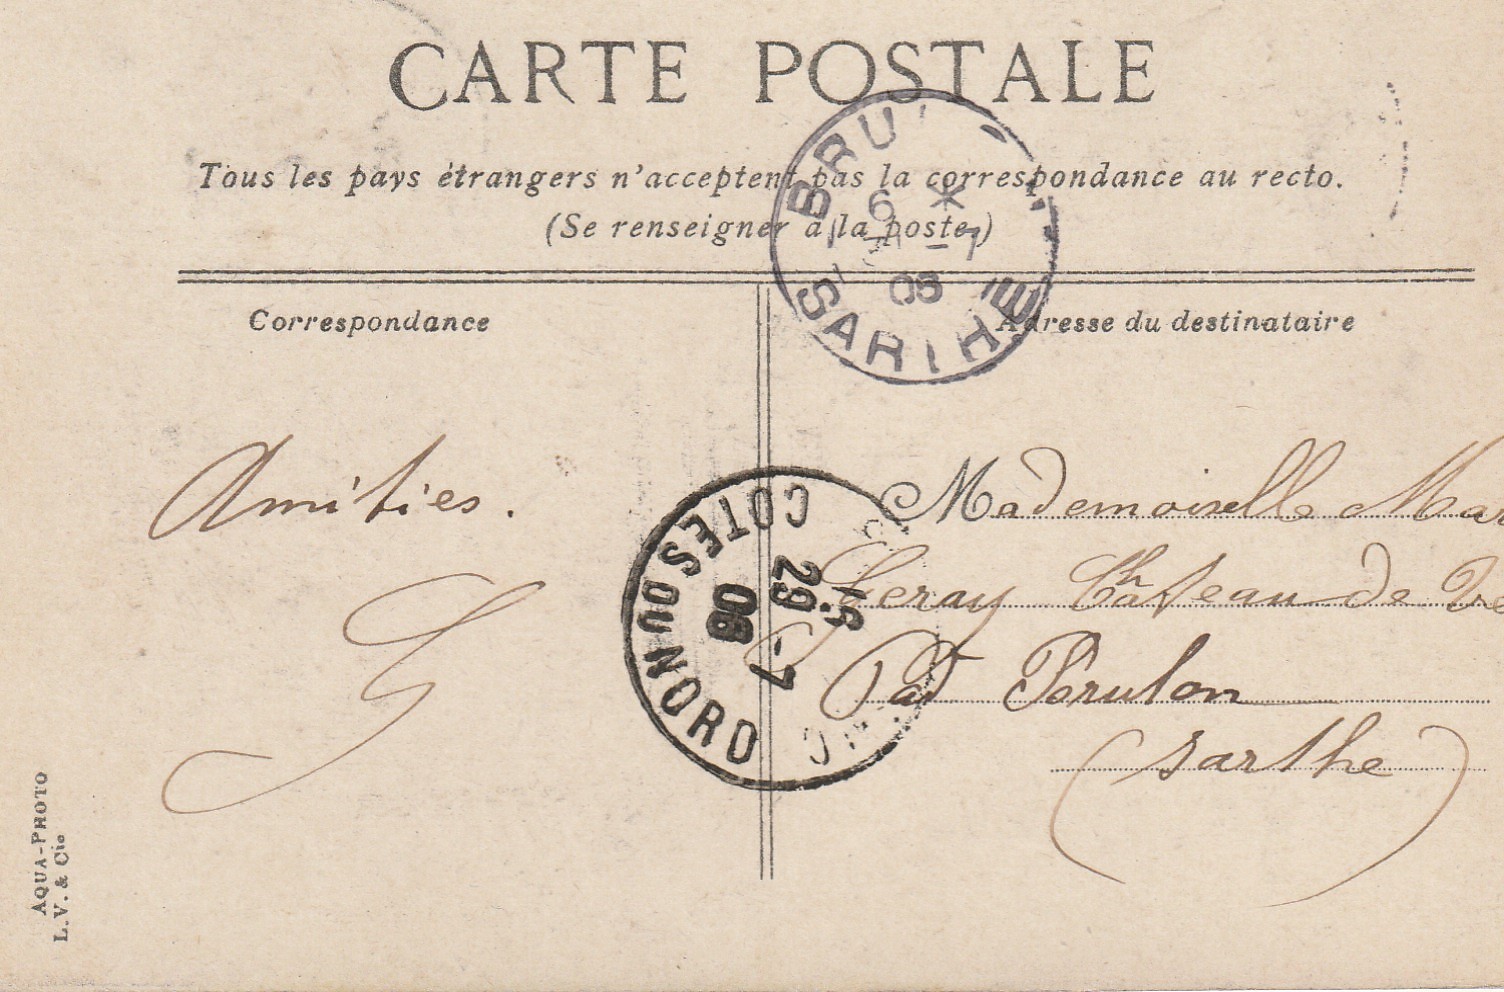 CARTE POSTALE
Tous les pays étrangers n'acceptent pas la correspondance au recto.
(Se renseigner à la poste)
BRU
6 *
-7
08
SARTHE
Correspondance
Adresse du destinataire
Amitiés.
G
COTES DU NORD
29-7
08
Mademoiselle Mar
Geray Château de
Par Brulon
(Sarthe)
AQUA-PHOTO
L.V. & Cie